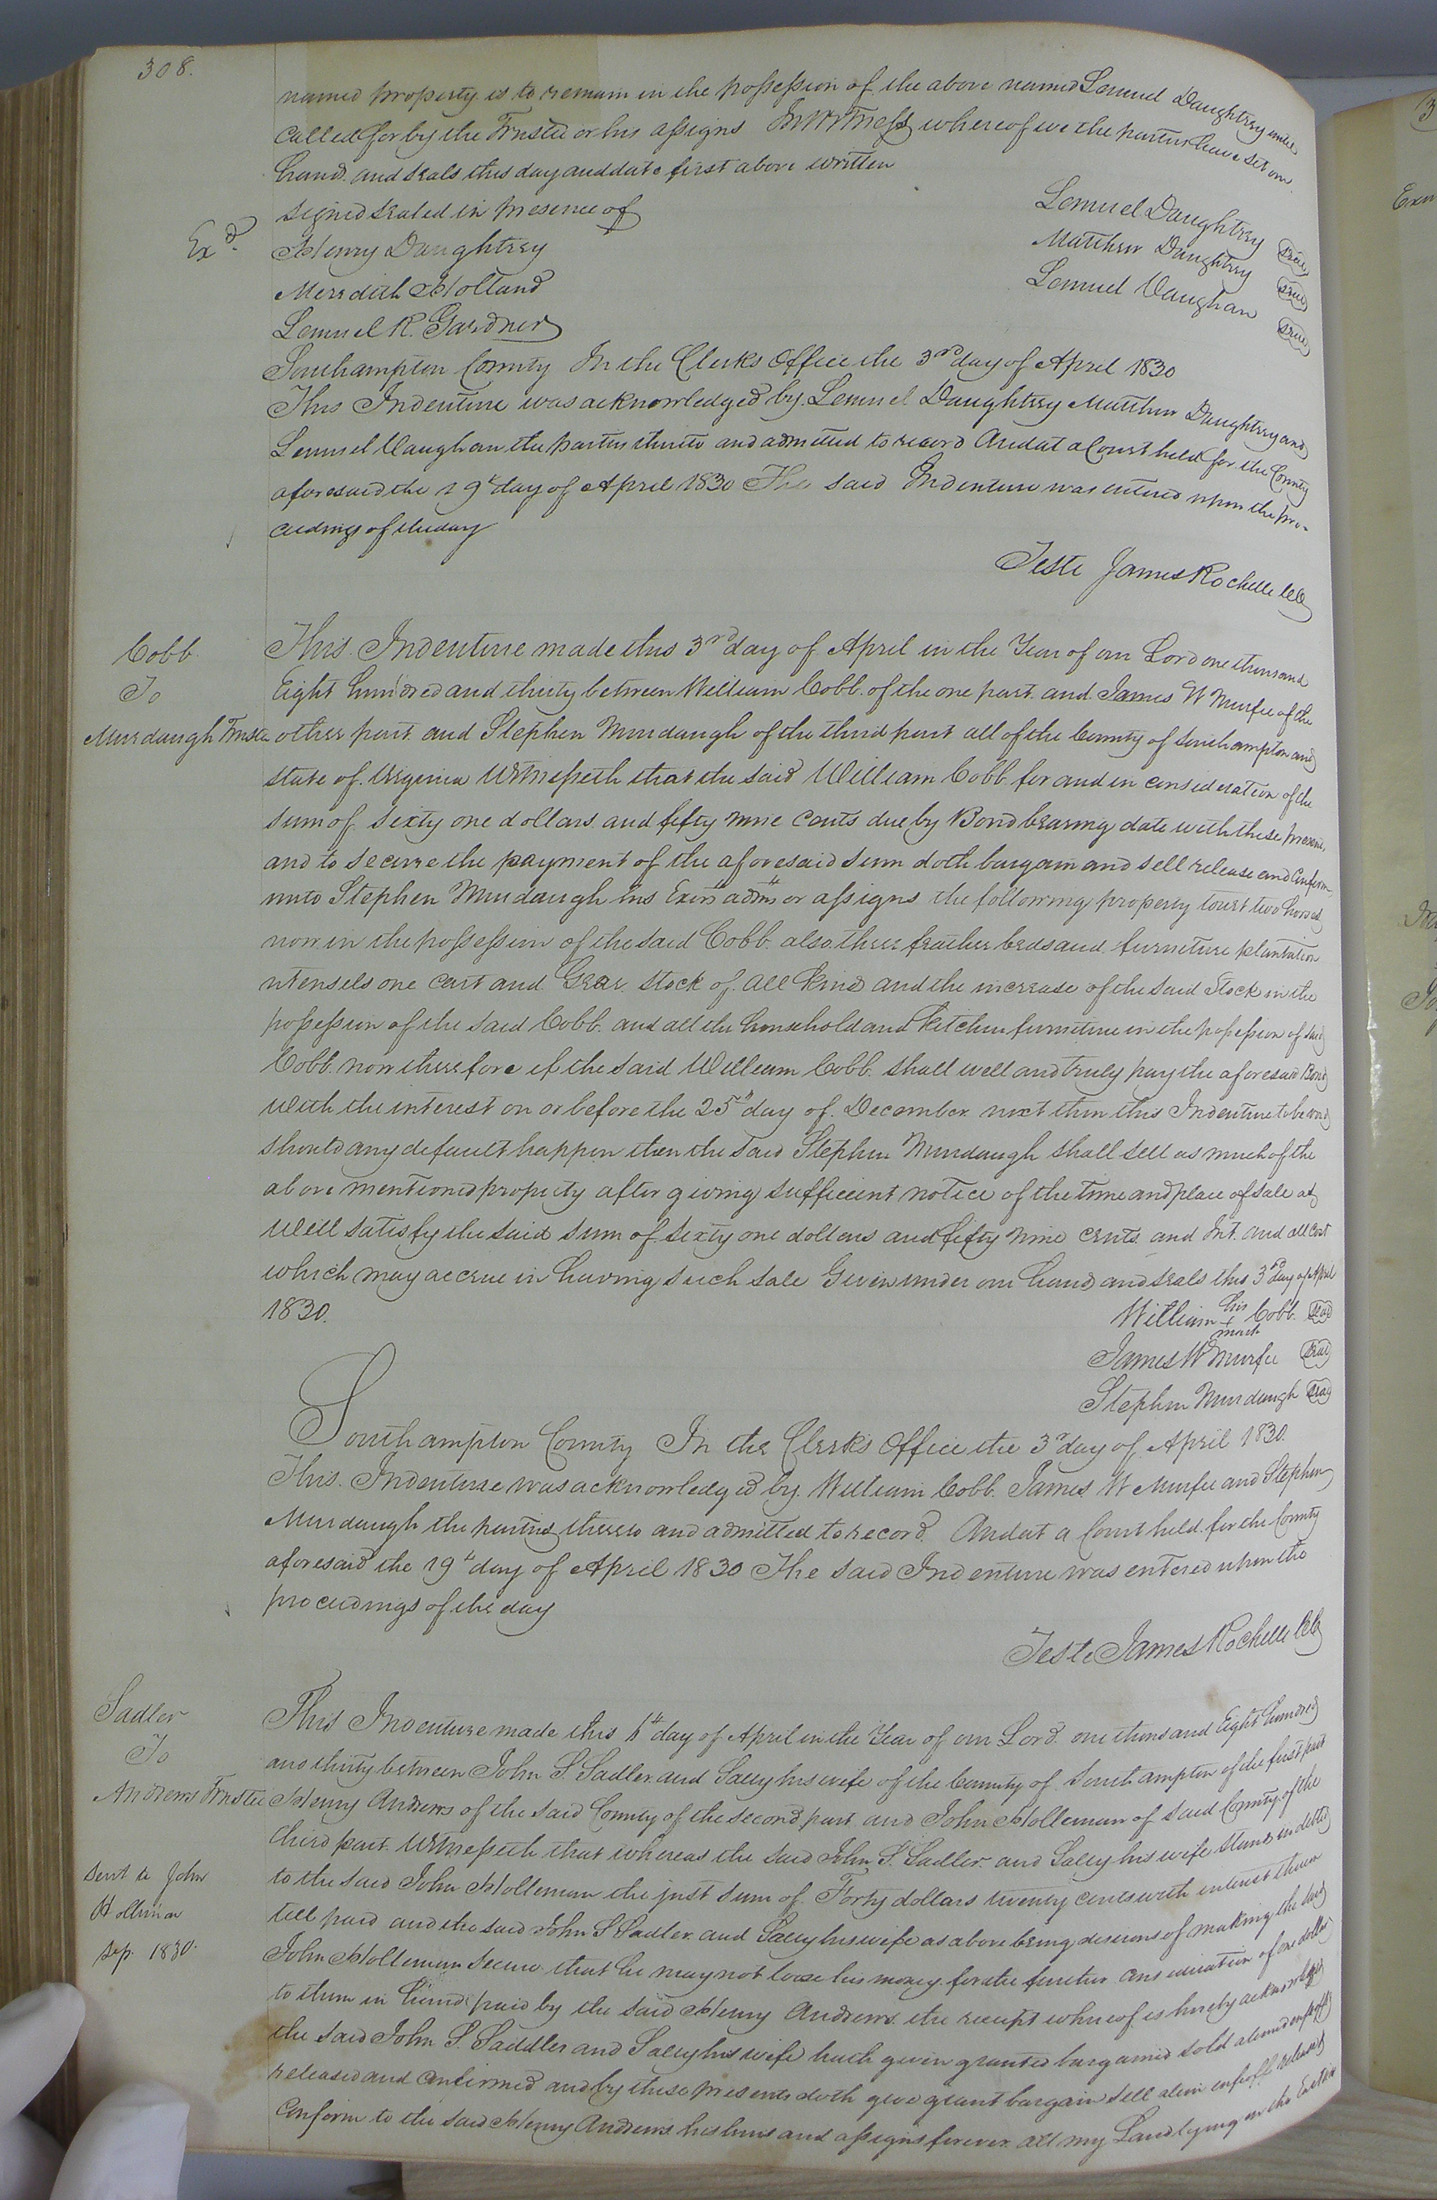 308.
named property is to remain in the possession of the above named Lemuel Daughtrey untill
called for by the Trustee or his assigns In Witness whereof we the parties have set our
hand. and seals this day and date first above written
Signed sealed in presence of
Lemuel Daughtrey seal
Exd.
Henry Daughtrey
Matthew Daughtrey seal
Meredith Holland
Lemuel Vaughan seal
Lemuel R. Gardner
Southampton County In the Clerks Office the 3rd day of April 1830
This Indenture was acknowledged by Lemuel Daughtrey Matthew Daughtrey and
Lemuel Vaughan the parties thereto and admitted to record And at a Court held for the County
aforesaid the 19th day of April 1830 The said Indenture was entered upon the pro-
ceedings of the day
Teste James Rochelle CC
Cobb
To
Murdaugh Trustee
This Indenture made this 3rd day of April in the Year of our Lord one thousand
Eight hundred and thirty between William Cobb. of the one part. and James W Murfee of the
other part. and Stephen Murdaugh of the third part all of the County of Southampton and
state of Virginia Witnesseth that the said William Cobb for and in consideration of the
sum of sixty one dollars and fifty nine cents due by Bond bearing date with these presents
and to secure the payment of the aforesaid sum doth bargain and sell release and confirm
unto Stephen Murdaugh his Exors admrs or assigns the following property towit two horses
now in the possession of the said Cobb. also three feather beds and furniture plantation
utensels one cart and Gear. stock of all kind and the increase of the said Stock in the
possession of the said Cobb. and all the household and kitchen furniture in the possession of said
Cobb. now therefore if the said William Cobb. shall well and truly pay the aforesaid Bond
with the interest on or before the 25th day of December next then this Indenture to be void
should any default happen then the said Stephen Murdaugh shall sell as much of the
above mentioned property after giving sufficient notice of the time and place of sale as
will satisfy the said sum of sixty one dollars and fifty nine cents and Int. and all cost
which may accrue in having such sale Given under our hand and seals this 3rd day of April
1830.
William his + mark Cobb. seal
James W Murfee seal
Stephen Murdaugh seal
Southampton County In the Clerks Office the 3rd day of April 1830.
This Indenture was acknowledged by William Cobb. James W Murfee and Stephen
Murdaugh the parties thereto and admitted to record. And at a Court held for the County
aforesaid the 19th day of April 1830 The said Indenture was entered upon the
proceedings of the day
Teste James Rochelle CC
Sadler
To
Andrews Trustee
sent to John
Holleman
Sep. 1830.
This Indenture made this day of April in the Year of our Lord one thousand Eight hundred
and thirty between John S. Sadler and Sally his wife of the County of Southampton of the first part
Henry Andrews of the said County of the second part and John Holleman of said County of the
third part. Witnesseth that whereas the said John S. Sadler and Sally his wife stands indebted
to the said John Holleman the just sum of Forty dollars twenty cents with interest theron
till paid and the said John S Sadler and Sally his wife as above being desirous of making the said
John Holleman secure that he may not loose his money for the further consideration of one dollar
to them in hand paid by the said Henry Andrews the receipt whereof is hereby acknowledged
the said John S. Saddler and Sally his wife hath given granted bargained sold aliened enfeoffd
released and confirmed and by these presents doth give grant bargain sell alien enfeoff release &
Confirm to the said Henry Andrews his heirs and assigns forever. all my Land lying on the Eastern